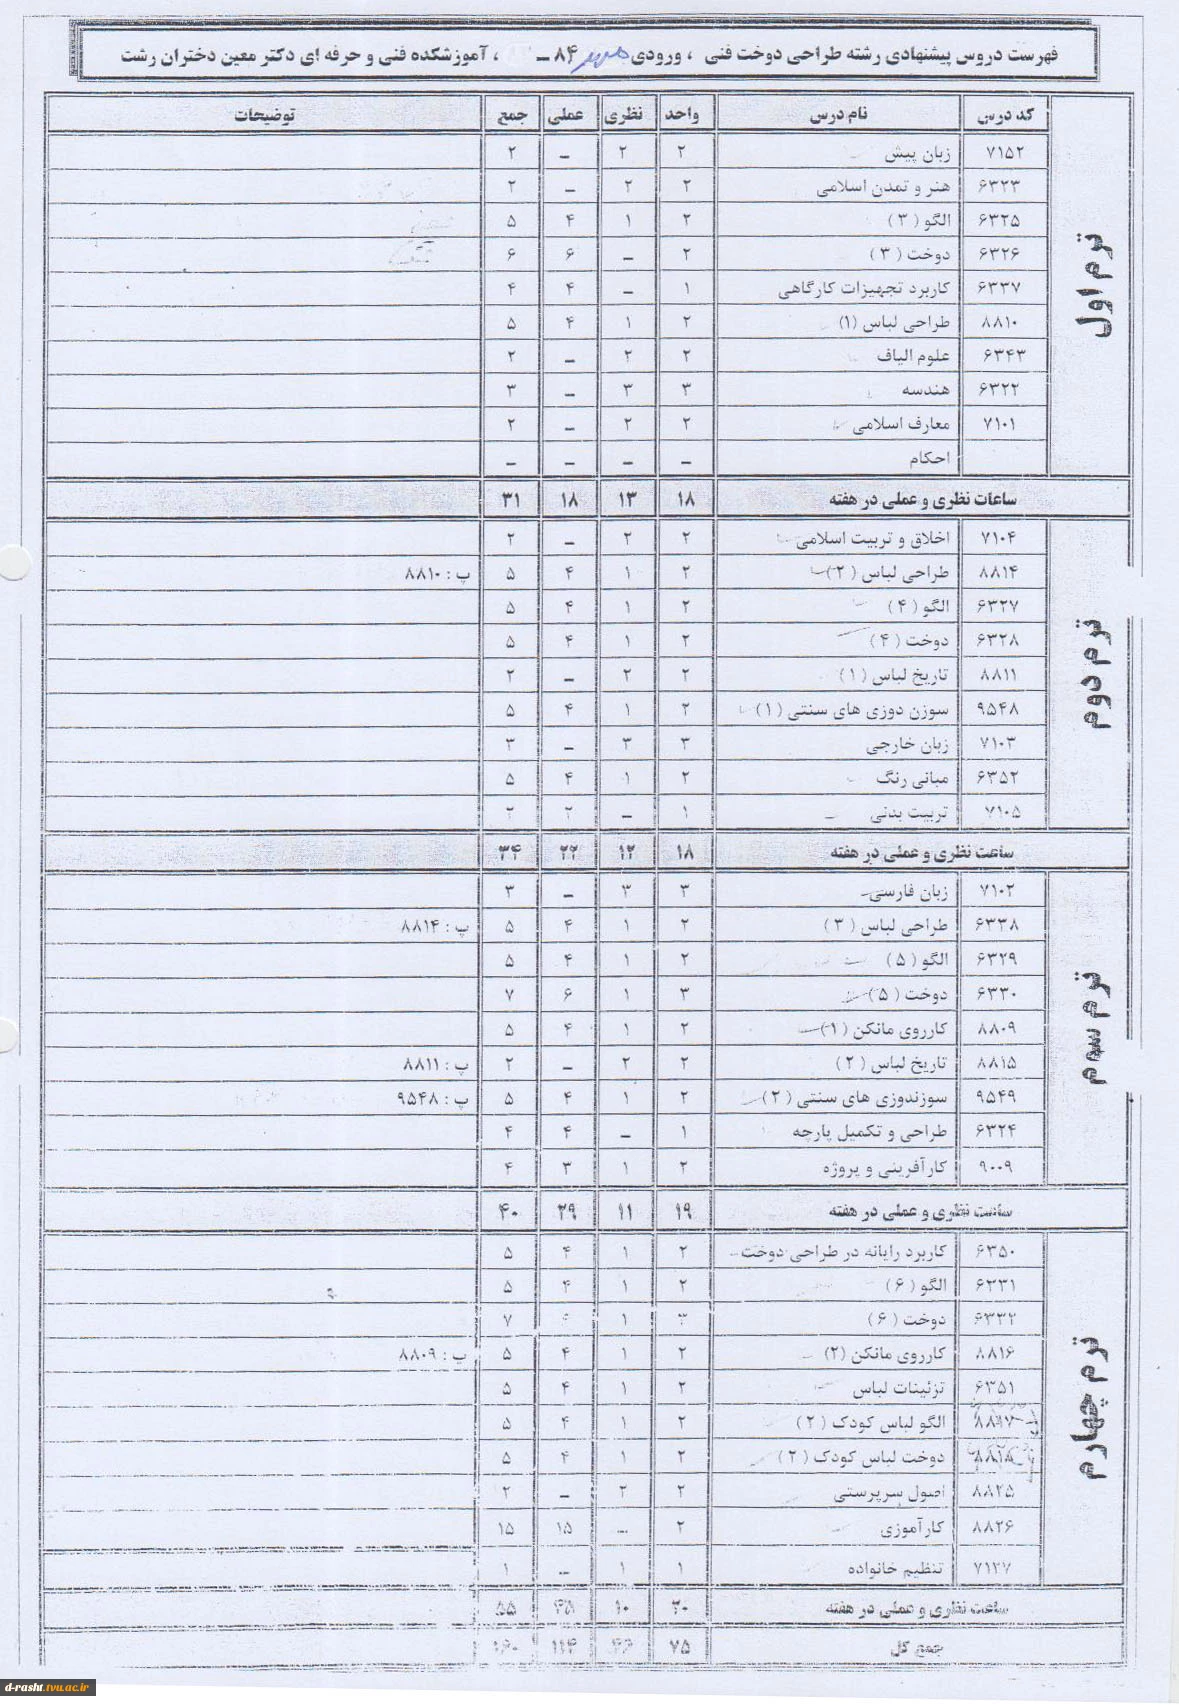 فهرست دروس پیشنهادی رشته طراحی دوخت فنی ، ورودی مهر ۸۴ ـ ، آموزشکده فنی و حرفه ای دکتر معین دختران رشت
کد درس نام درس واحد نظری عملی جمع توضیحات
ترم اول
۷۱۵۲ زبان پیش ۲ ۲ ـ ۲
۶۳۲۳ هنر و تمدن اسلامی ۲ ۲ ـ ۲
۶۳۲۵ الگو ( ۳ ) ۲ ۱ ۴ ۵
۶۳۲۶ دوخت ( ۳ ) ۲ ـ ۶ ۶
۶۳۳۷ کاربرد تجهیزات کارگاهی ۱ ـ ۴ ۴
۸۸۱۰ طراحی لباس (۱) ۲ ۱ ۴ ۵
۶۳۴۳ علوم الیاف ۲ ۲ ـ ۲
۶۳۲۲ هندسه ۳ ۳ ـ ۳
۷۱۰۱ معارف اسلامی ۲ ۲ ـ ۲
احکام ـ ـ ـ ـ
ساعات نظری و عملی در هفته ۱۸ ۱۳ ۱۸ ۳۱
ترم دوم
۷۱۰۴ اخلاق و تربیت اسلامی ۲ ۲ ـ ۲
۸۸۱۴ طراحی لباس ( ۲ ) ۲ ۱ ۴ ۵ پ : ۸۸۱۰
۶۳۲۷ الگو ( ۴ ) ۲ ۱ ۴ ۵
۶۳۲۸ دوخت ( ۴ ) ۲ ۱ ۴ ۵
۸۸۱۱ تاریخ لباس ( ۱ ) ۲ ۲ ـ ۲
۹۵۴۸ سوزن دوزی های سنتی ( ۱ ) ۲ ۱ ۴ ۵
۷۱۰۳ زبان خارجی ۳ ۳ ـ ۳
۶۳۵۲ مبانی رنگ ۲ ۱ ۴ ۵
۷۱۰۵ تربیت بدنی ۱ ـ ۲ ۲
ساعت نظری و عملی در هفته ۱۸ ۱۲ ۲۲ ۳۴
ترم سوم
۷۱۰۲ زبان فارسی ۳ ۳ ـ ۳
۶۳۳۸ طراحی لباس ( ۳ ) ۲ ۱ ۴ ۵ پ : ۸۸۱۴
۶۳۲۹ الگو ( ۵ ) ۲ ۱ ۴ ۵
۶۳۳۰ دوخت ( ۵ ) ۳ ۱ ۶ ۷
۸۸۰۹ کارروی مانکن ( ۱ ) ۲ ۱ ۴ ۵
۸۸۱۵ تاریخ لباس ( ۲ ) ۲ ۲ ـ ۲ پ : ۸۸۱۱
۹۵۴۹ سوزندوزی های سنتی ( ۲ ) ۲ ۱ ۴ ۵ پ : ۹۵۴۸
۶۳۲۴ طراحی و تکمیل پارچه ۱ ـ ۴ ۴
۹۰۰۹ کارآفرینی و پروژه ۲ ۱ ۳ ۴
ساعت نظری و عملی در هفته ۱۹ ۱۱ ۲۹ ۴۰
ترم چهارم
۶۳۵۰ کاربرد رایانه در طراحی دوخت ۲ ۱ ۴ ۵
۶۳۳۱ الگو ( ۶ ) ۲ ۱ ۴ ۵
۶۳۳۲ دوخت ( ۶ ) ۳ ۱ ۶ ۷
۸۸۱۶ کارروی مانکن (۲) ۲ ۱ ۴ ۵ پ : ۸۸۰۹
۶۳۵۱ تزئینات لباس ۲ ۱ ۴ ۵
الگو لباس کودک ( ۲ ) ۲ ۱ ۴ ۵
دوخت لباس کودک ( ۲ ) ۲ ۱ ۴ ۵
۸۸۲۵ اصول سرپرستی ۲ ۲ ـ ۲
۸۸۲۶ کارآموزی ۲ ـ ۱۵ ۱۵
۷۱۲۷ تنظیم خانواده ۱ ۱ ـ ۱
ساعت نظری و عملی در هفته ۲۰ ۱۰ ۴۵ ۵۵
جمع کل ۷۵ ۴۶ ۱۱۴ ۱۶۰
d-rasht.tvu.ac.ir